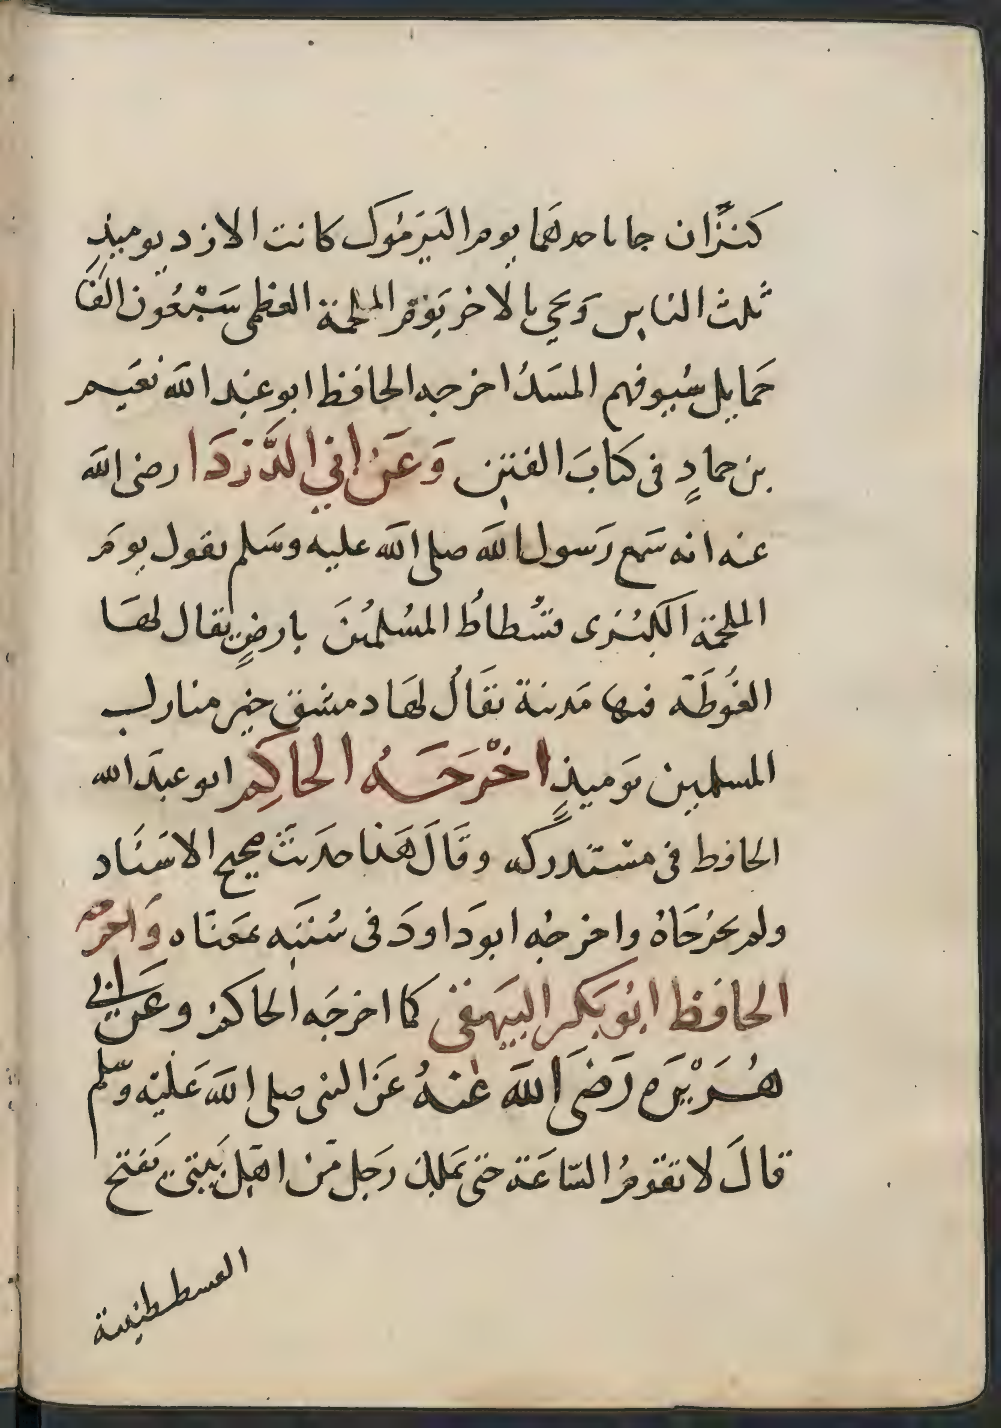 كنزًان جا باحدهما يوم اليَرمُوك كانت الازد يوميذٍ
ثلث الناس وَيجي بالاخر يَوْمَ الملحمة العظمى سَبْعُون الفًا
حَمايل سُيوفهم المسَدُ اخرجه الحافظ ابو عَبد الله نعَيم
بن حمادٍ فى كتابَ الفتن وَعَنْ ابي الدَّرْدَا رضى الله
عنه انه سَمع رَسول الله صلى الله عليه وسَلم يقول يومَ
الملحمة الكبْرى فسُّطاطُ المسُلمينَ بارضٍ يقال لهَا
الغُوطَة فيها مَدينة يقَالُ لهَا دمشق خير منازل
المسلمين يَوميذٍ اخْرَجَهُ الحَاكِم ابو عبدَ الله
الحافظ فى مستَدركه وقَالَ هَذا حَدِيثَ صحيح الاسْنَاد
ولم يخرجَاهُ واخرجه ابو دَاودَ فى سُننِه بمَعنَاه وَاخرجه
الحافظ ابُو بَكر البيَهقىّ كما اخرجَه الحاكم وعَن ابي
هُرَيْرَه رَضىَ الله عَنهُ عَن النبى صلى الله عَليْه وسّلم
قالَ لا تقومُ السّاعَة حتى يَملك رَجل مّن اهل بَيتى يَفتح
القسطنطينية